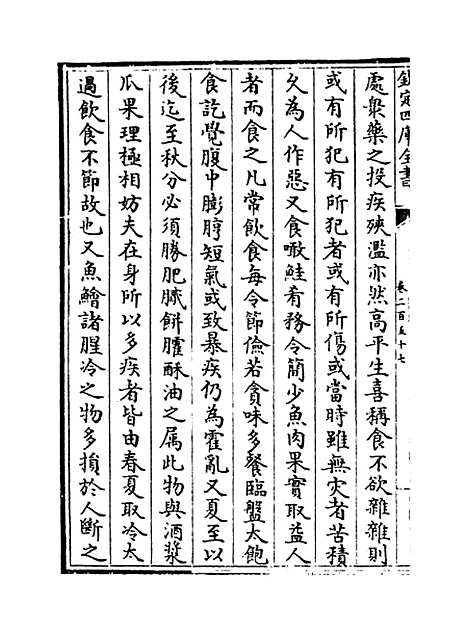 欽定四庫全書
卷二百五十七
處衆藥之投疾殃濫亦然高平生喜稱食不欲雜雜則
或有所犯有所犯者或有所傷或當時雖無灾者苦積
久為人作惡又食噉鮭肴務令簡少魚肉果實取益人
者而食之凡常飲食每令節儉若貪味多餐臨盤太飽
食訖覺腹中膨脝短氣或致暴疾仍為霍亂又夏至以
後迄至秋分必須勝肥膩餅臛酥油之属此物與酒漿
瓜果理極相妨夫在身所以多疾者皆由春夏取冷太
過飲食不節故也又魚鱠諸腥冷之物多損於人斷之